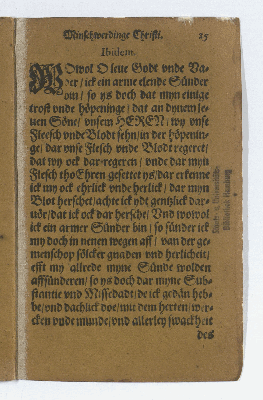 Minschwerdinge Christi. 25
Ibidem.
WOwol O leue Godt vnde Va-
der / ick ein arme elende Sünder
bom / so ys doch dat myn einige
trost vnde höpeninge / dat an dynem le-
uen Söne / vnsem HEREN / wy vnse
Fleesch vnde Blodt sehn / in der höpenin-
ge / dat vnse Fleesch vnde Blodt regeret /
dat wy ock dar regeren / vnde dar myn
Flesch tho Ehren gesettet ys / dar erkenne
ick my ock ehrlick vnde herlick / dar myn
Blot herschet / achte ick ydt gentlick dar-
uör / dat ick ock dar hersche / Vnd wowol
ick ein armer Sünder bin / so sünder ick
my doch in nenen wegen aff / van der ge-
menschop sölcker gnaden vnd herlicheit /
efft my allrede myne Sünde wolden
affsünderen / so ys doch dar myne Sub-
stantie vnd Missedadt / de ick gedän heb-
be / vnd dachlick doe / mit dem herten / wer-
cken vnde munde / vnd allerley swackheit
des